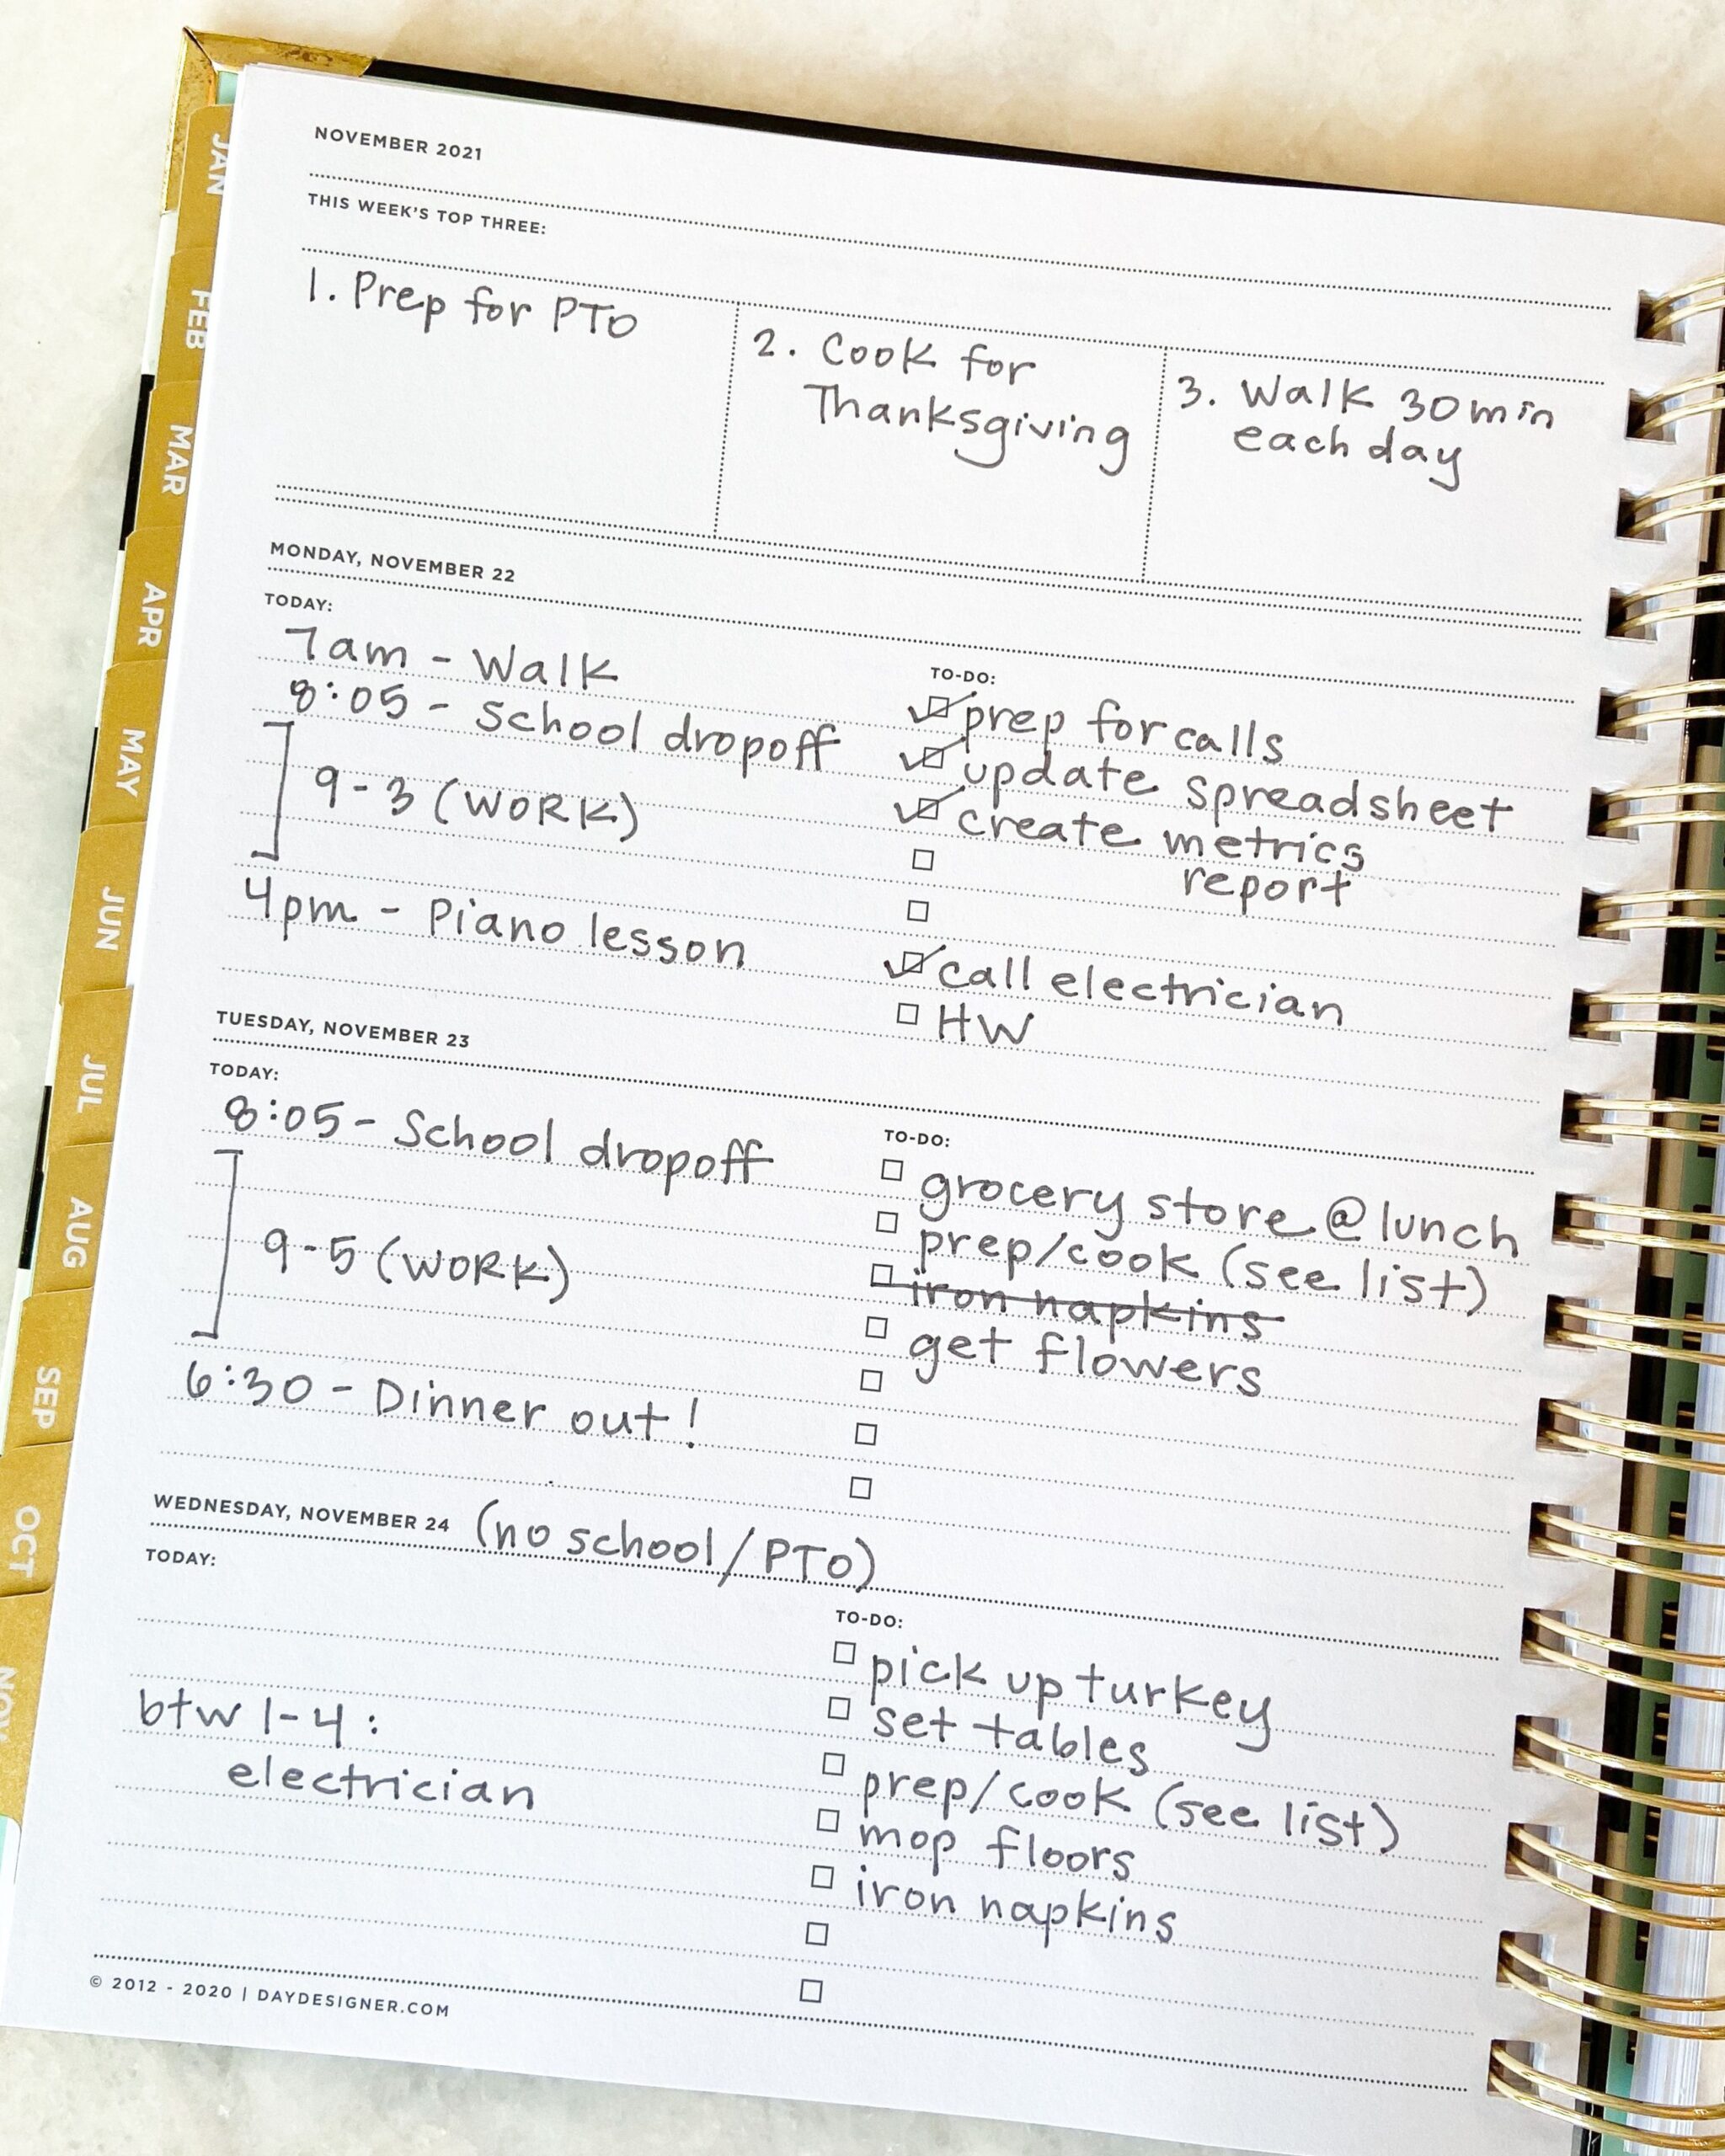 JAN
FEB
MAR
APR
MAY
JUN
JUL
AUG
SEP
OCT
NOV
NOVEMBER 2021
THIS WEEK'S TOP THREE:
1. Prep for PTO
2. Cook for
Thanksgiving
3. Walk 30 min
each day
MONDAY, NOVEMBER 22
TODAY:
7am - Walk
8:05 - School dropoff
9-3 (WORK)
4pm - Piano lesson
TO-DO:
prep for calls
update spreadsheet
create metrics
report
call electrician
HW
TUESDAY, NOVEMBER 23
TODAY:
8:05 - School dropoff
9-5 (WORK)
6:30 - Dinner out!
TO-DO:
grocery store @ lunch
prep/cook (see list)
iron napkins
get flowers
WEDNESDAY, NOVEMBER 24 (no school/PTO)
TODAY:
btw 1-4:
electrician
TO-DO:
pick up turkey
set tables
prep/cook (see list)
mop floors
iron napkins
© 2012 - 2020 | DAYDESIGNER.COM